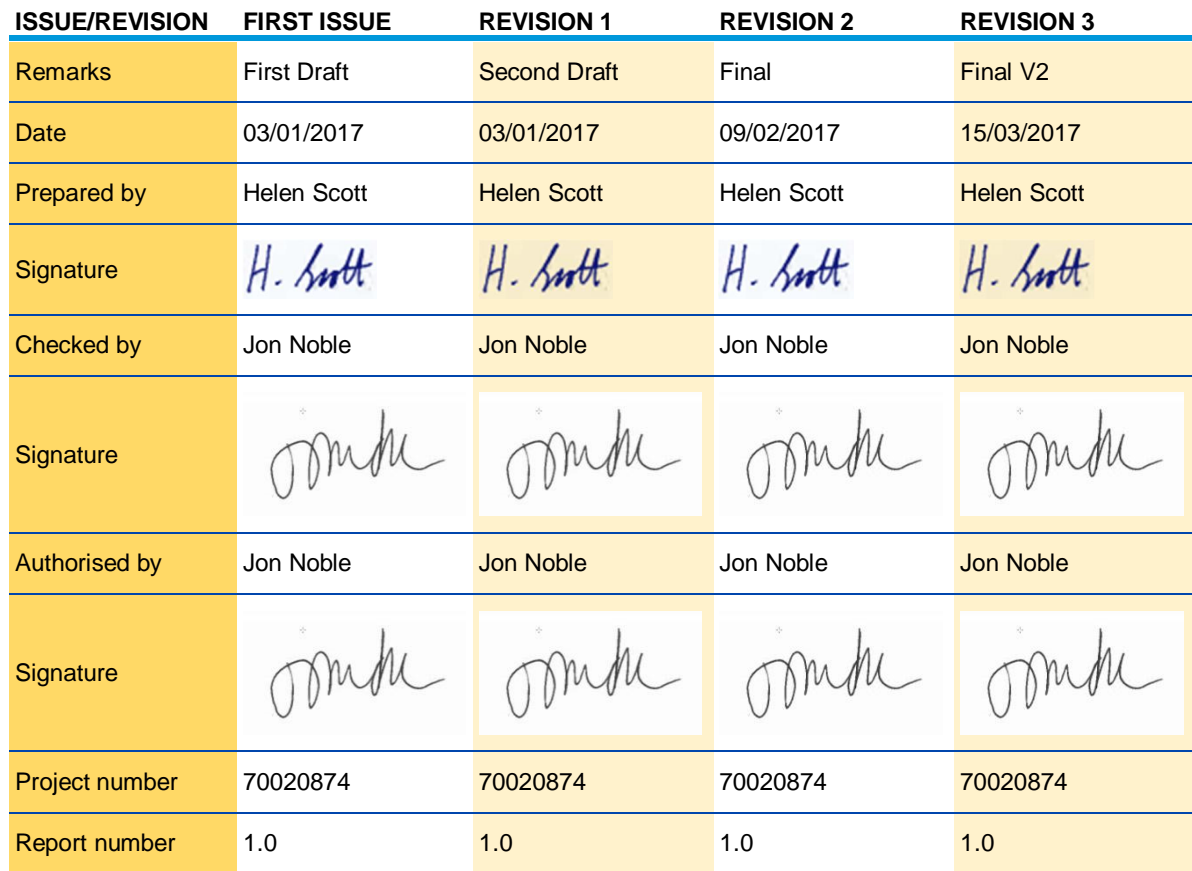 ISSUE/REVISION FIRST ISSUE REVISION 1 REVISION 2 REVISION 3
Remarks First Draft Second Draft Final Final V2
Date 03/01/2017 03/01/2017 09/02/2017 15/03/2017
Prepared by Helen Scott Helen Scott Helen Scott Helen Scott
Signature H. Scott H. Scott H. Scott H. Scott
Checked by Jon Noble Jon Noble Jon Noble Jon Noble
Signature
Authorised by Jon Noble Jon Noble Jon Noble Jon Noble
Signature
Project number 70020874 70020874 70020874 70020874
Report number 1.0 1.0 1.0 1.0